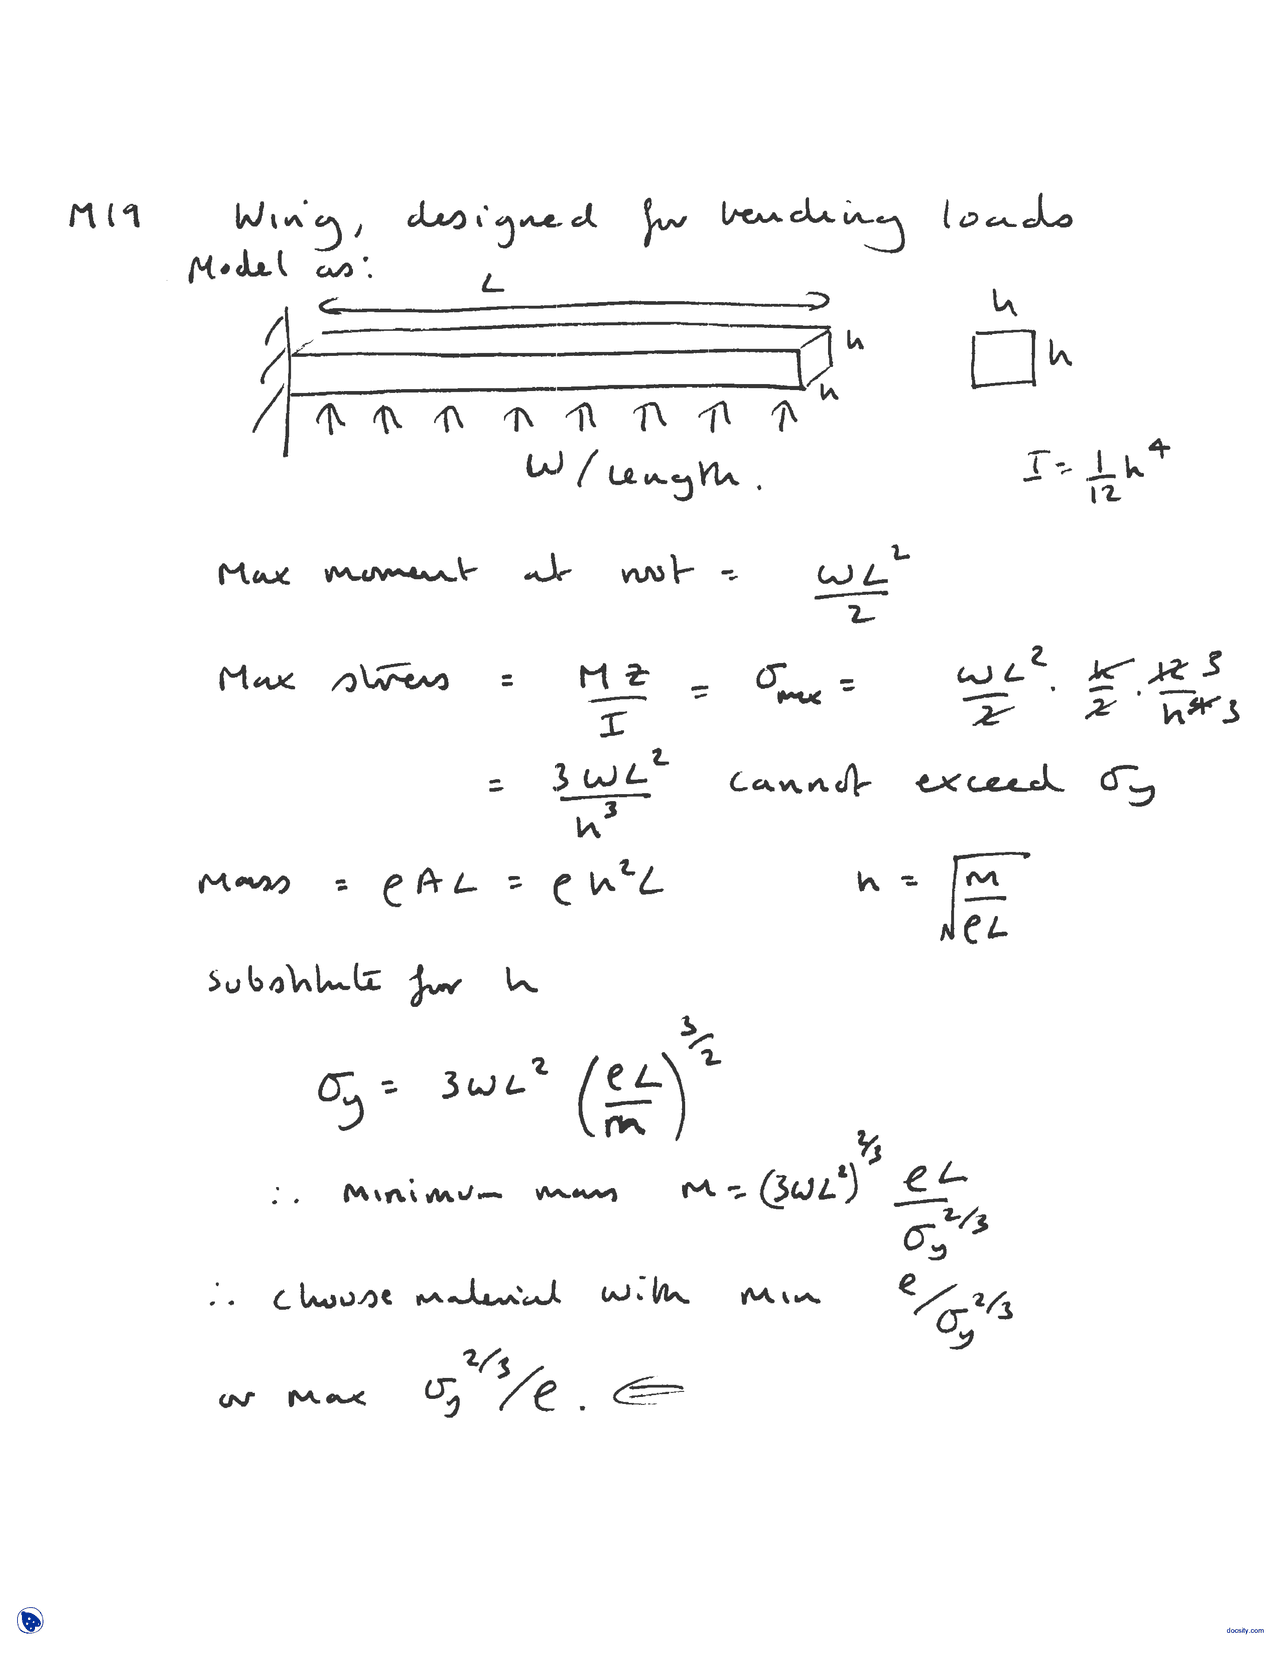 M19 Wing, designed for bending loads
Model as:
L
h
h
h
h
W / Length.
I = 1/12 h^4
Max moment at root = wL^2/2
Max stress = Mz/I = σmax = wL^2/2 . h/2 . 12 3/h^4 3
= 3wL^2/h^3 cannot exceed σy
Mass = ρAL = ρh^2L h = √(m/ρL)
substitute for h
σy = 3wL^2 (ρL/m)^3/2
∴ minimum mass M = (3wL^2)^2/3 ρL/σy^2/3
∴ choose material with min ρ/σy^2/3
or max σy^2/3/ρ. ⇐
docsity.com